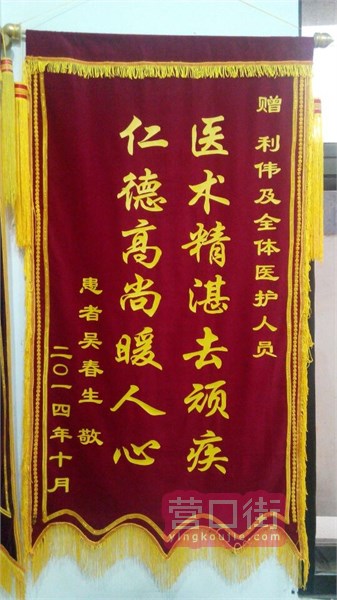 赠 利伟及全体医护人员
医术精湛去顽疾
仁德高尚暖人心
患者吴春生 敬
二〇一四年十月
营口街
yingkoujie.com